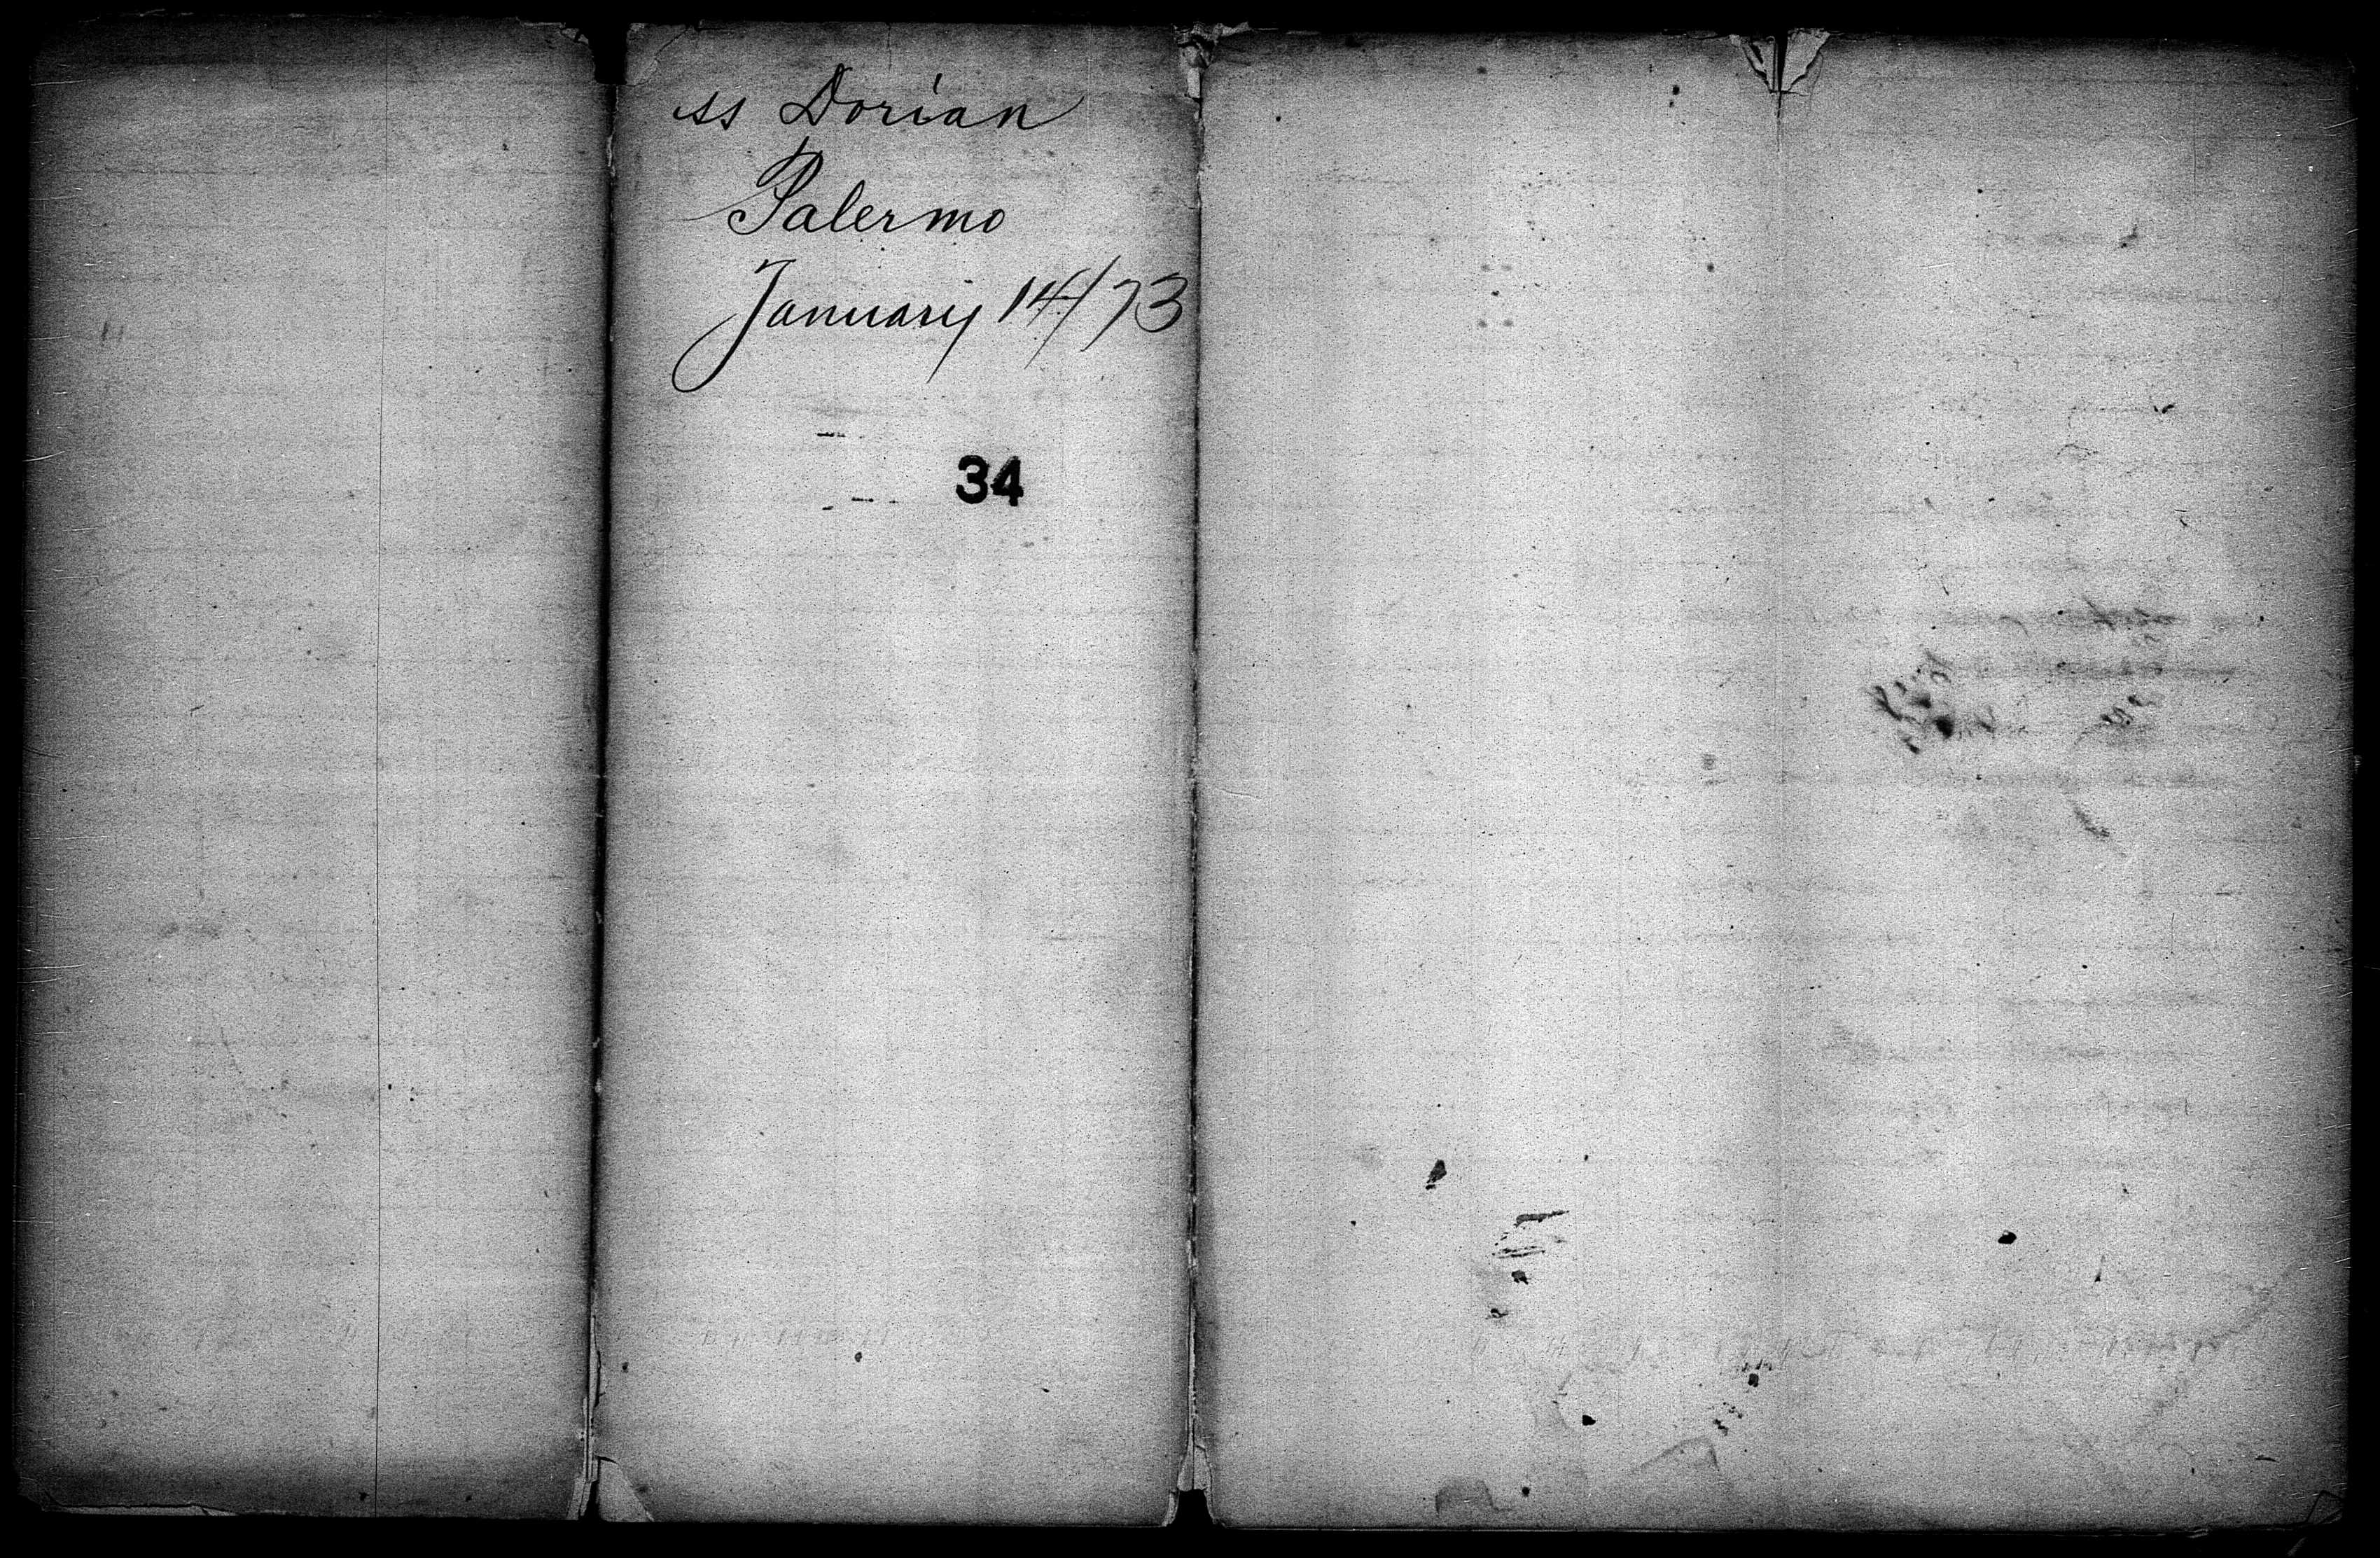 ss Dorian
Palermo
January 14/73
34